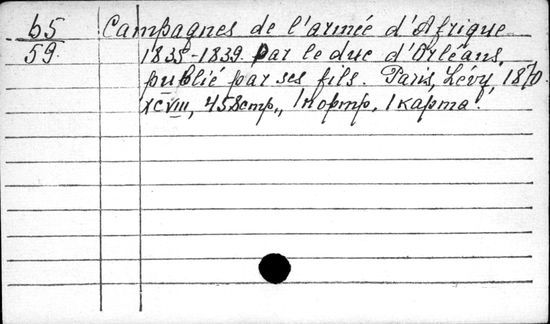 б5
59
Campagnes de l'armée d'Afrique
1835-1839. Par le duc d'Orléans,
publié par ses fils. Paris, Lévy, 1870.
XCVIII, 458 стр., 1 портр., 1 карта.